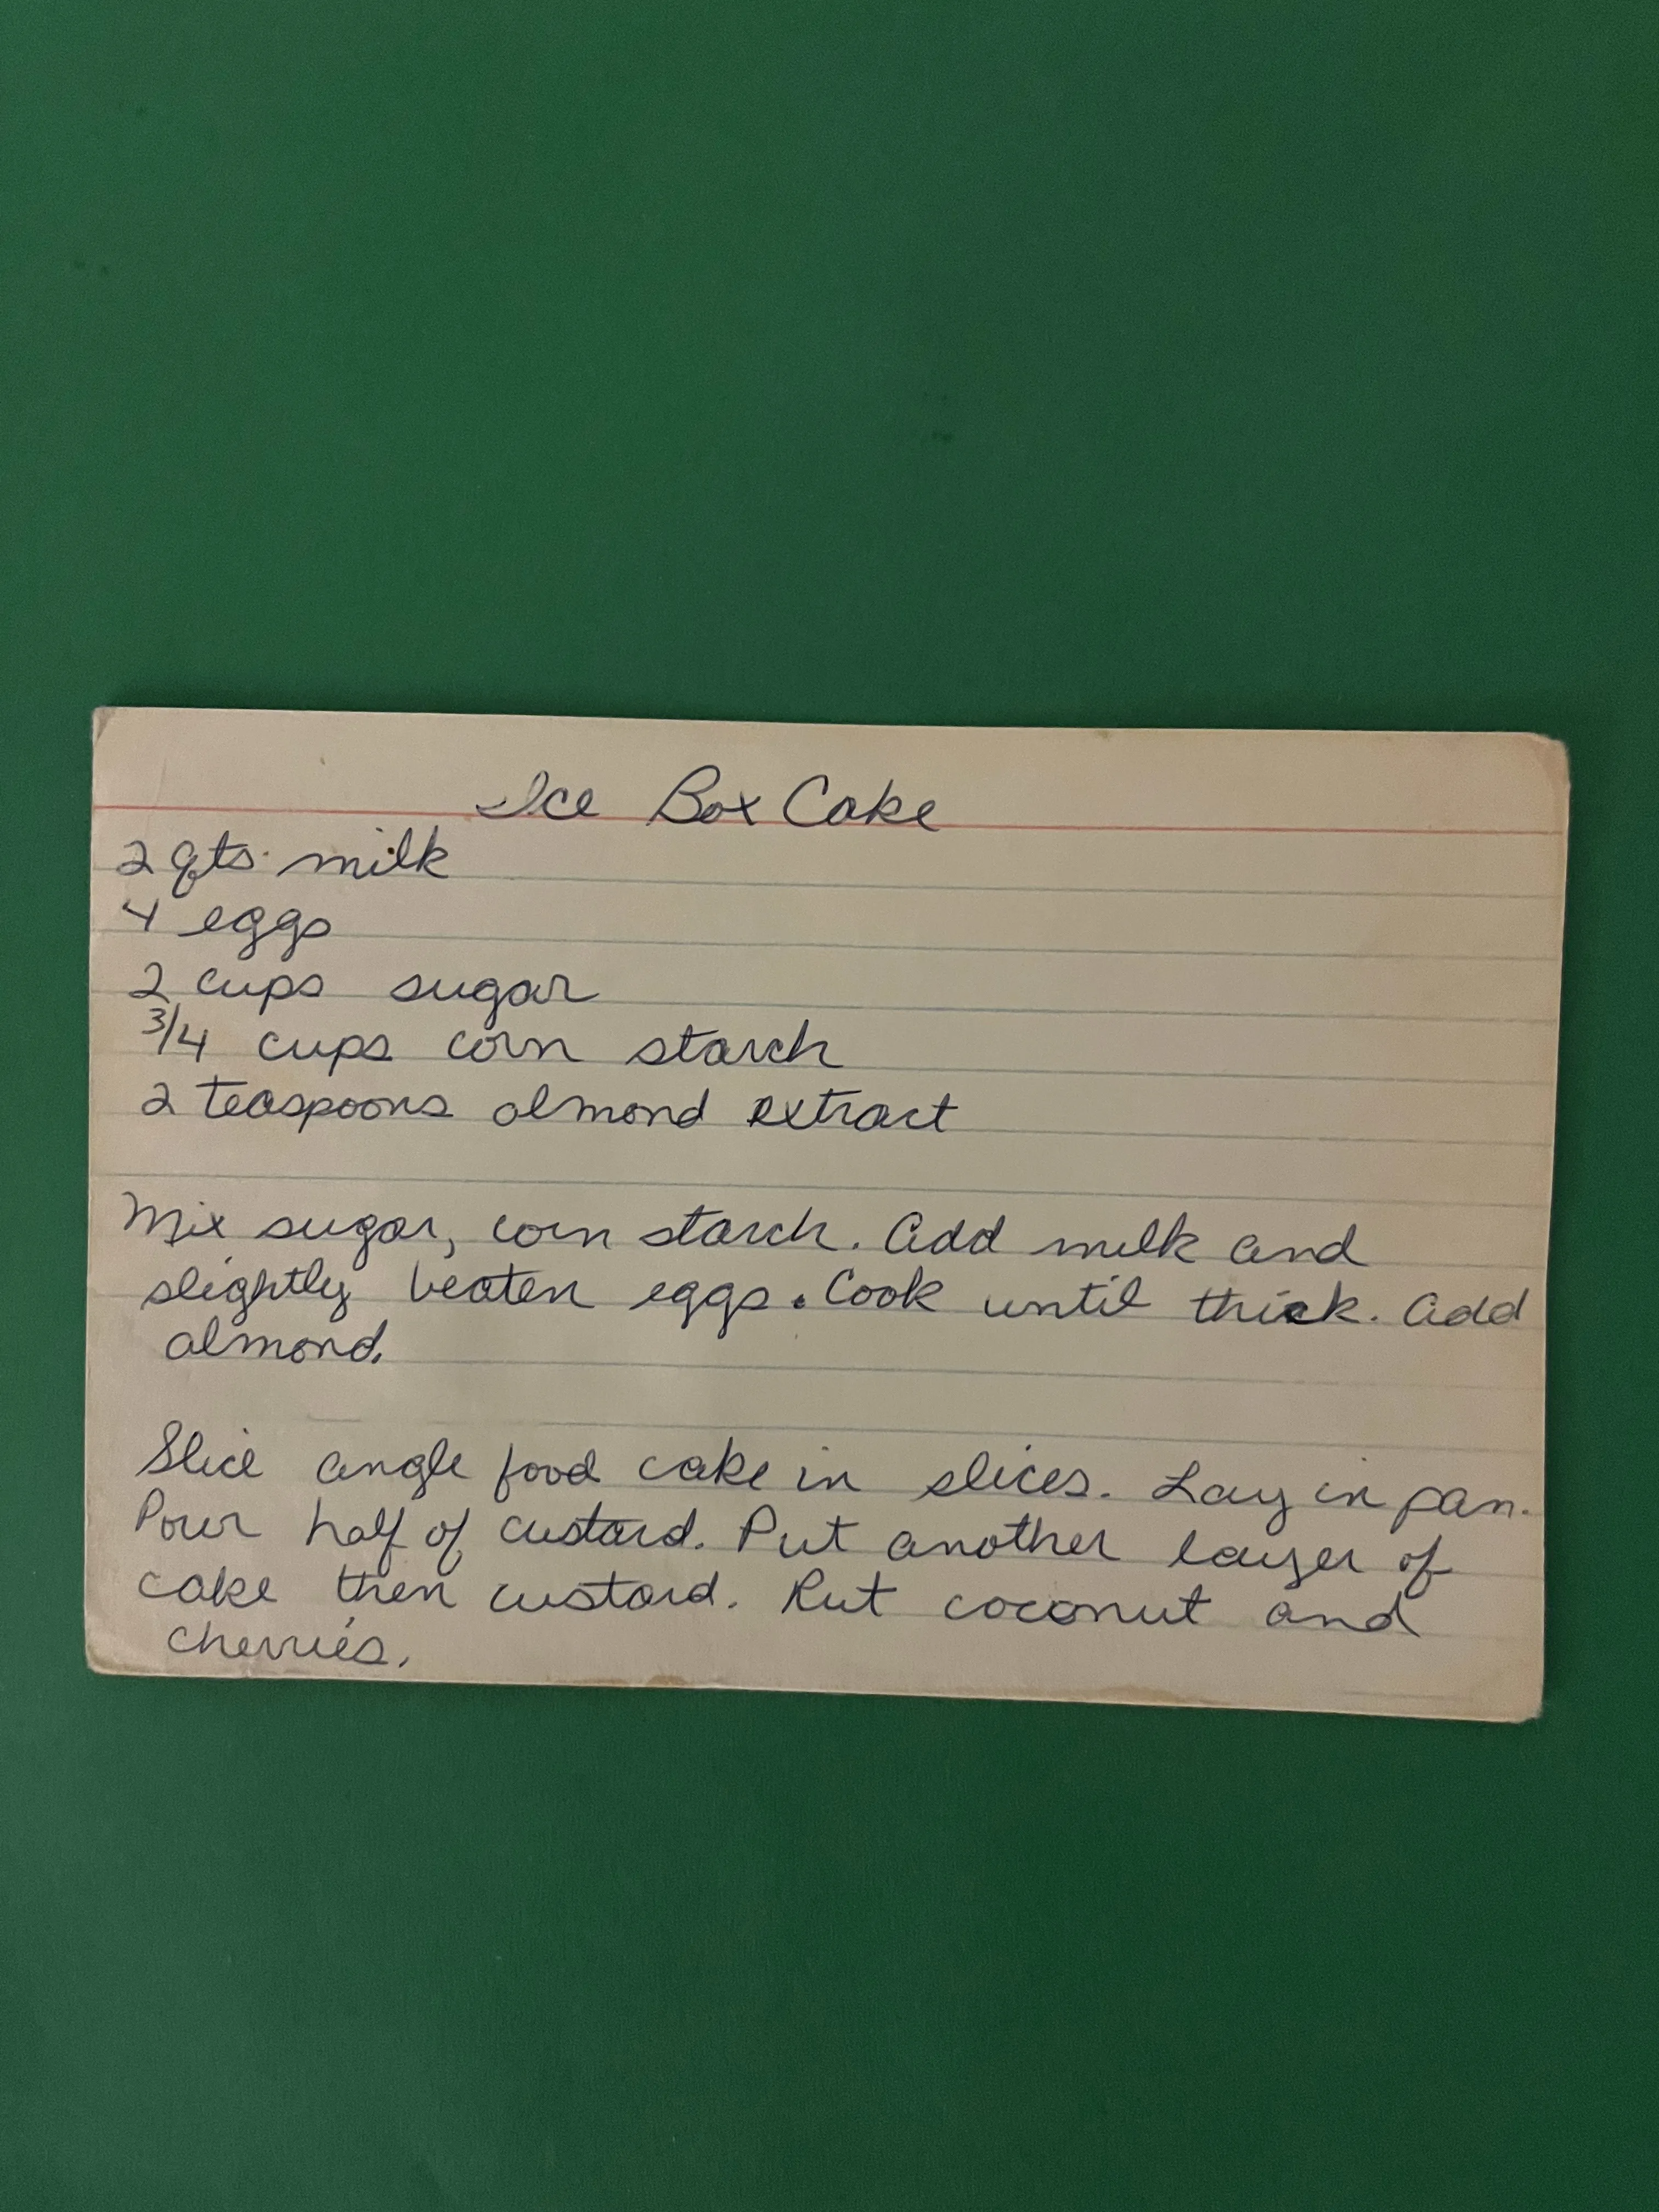 Ice Box Cake
2 qts. milk
4 eggs
2 cups sugar
3/4 cups corn starch
2 teaspoons almond extract
Mix sugar, corn starch. Add milk and
slightly beaten eggs. Cook until thick. Add
almond.
Slice angle food cake in slices. Lay in pan.
Pour half of custard. Put another layer of
cake then custard. Put coconut and
cherries.